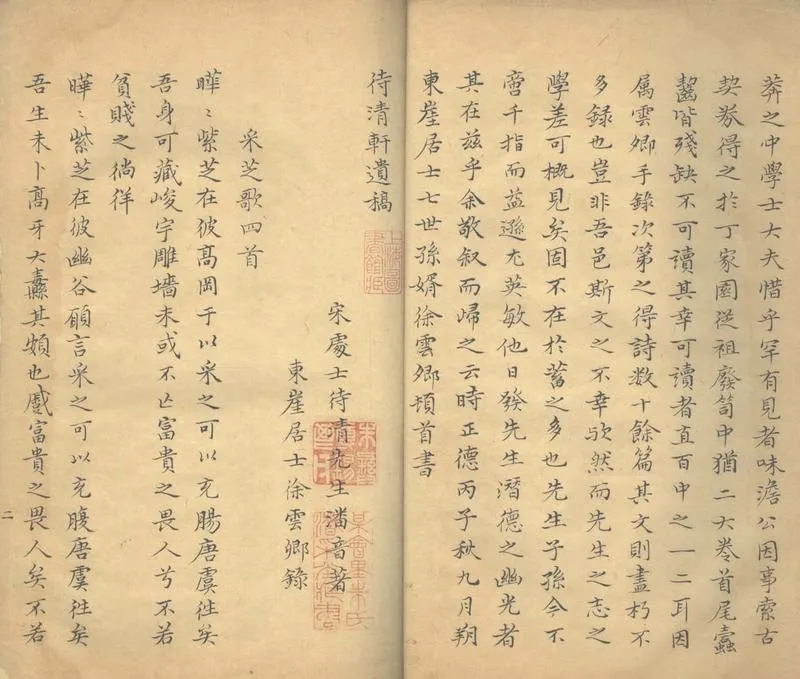 莽之中學士大夫惜乎罕有見者味澹公因事索古
契券得之於丁家園從祖廢笥中猶二大卷首尾蠹
齧皆殘缺不可讀其幸可讀者直百中之一二耳因
属雲卿手錄次第之得詩数十餘篇其文則盡朽不
多録也豈非吾邑斯文之不幸欤然而先生之志之
學差可概見矣固不在於蓄之多也先生子孫今不
啻千指而益遜尤英敏他日發先生潛德之幽光者
其在兹乎余敬叙而歸之云時正德丙子秋九月朔
東崖居士七世孫婿徐雲卿頓首書
待清軒遺稿
宋處士待清先生潘音著
東崖居士徐雲卿錄
采芝歌四首
曄〻紫芝在彼髙岡于以采之可以充腸唐虞徃矣
吾身可藏峻宇雕墻未或不亡富貴之畏人兮不若
貧賤之徜徉
曄〻紫芝在彼幽谷願言采之可以充腹唐虞徃矣
吾生未卜髙牙大纛其頻也慼富貴之畏人矣不若
二